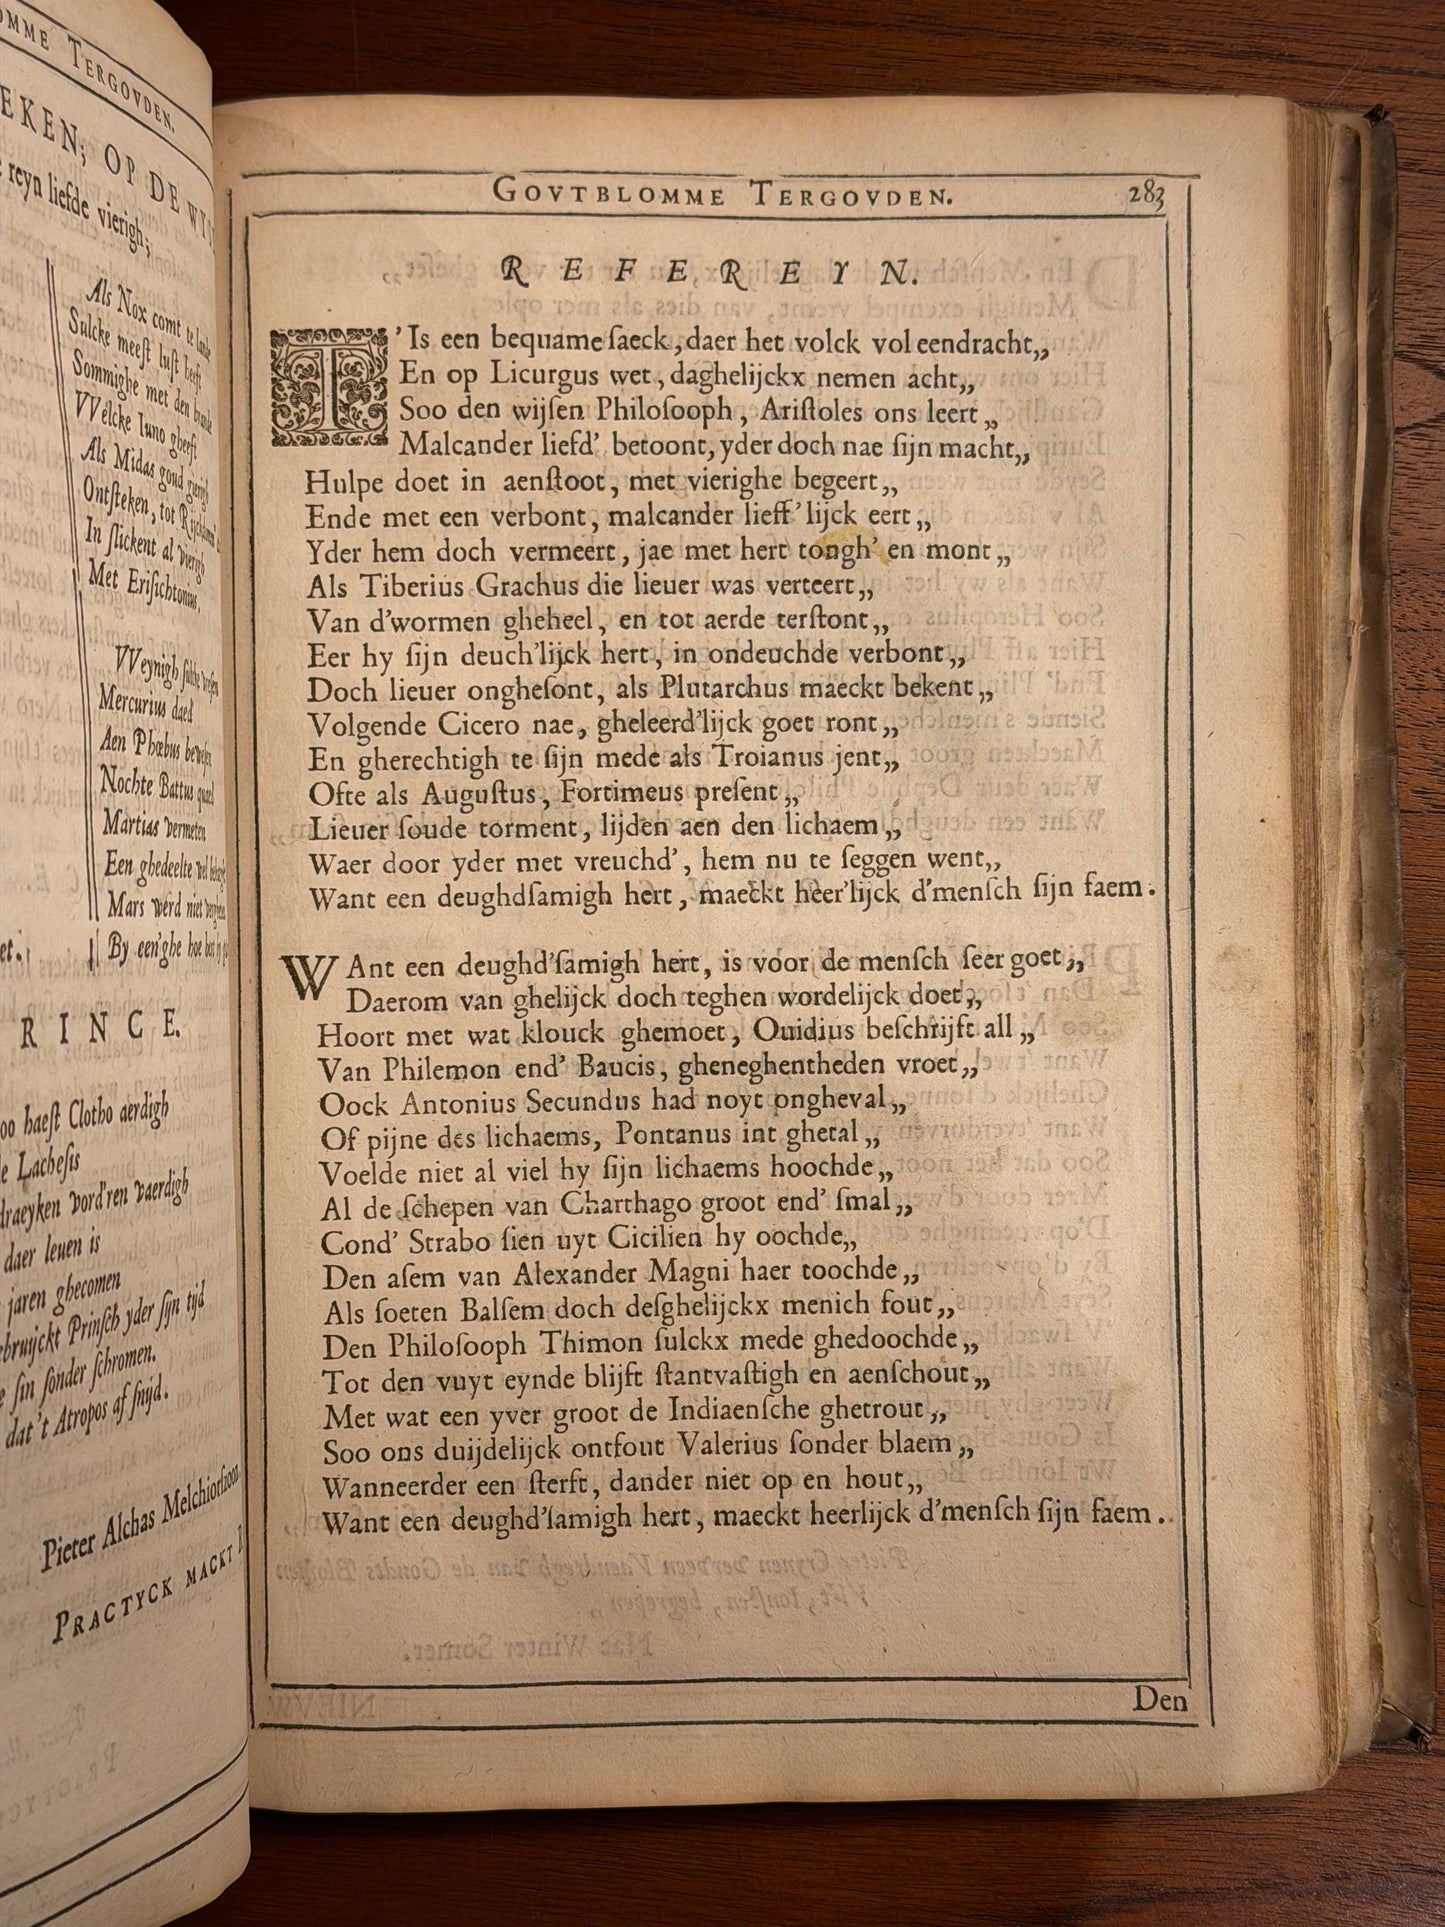 OMME TERGOVDEN.
EKEN; OP DE
reyn liefde vierigh;
Als Nox comt te
Sulcke meeſt luſt heeft
Sommighe met den
VVelcke Iuno gheeft
Als Midas goud gierigh
Ontſteken, tot
In ſlickent al vierigh
Met Eriſichtonius.
VVeynigh ſulcke
Mercurius daed
Aen Phœbus
Nochte Battus quael
Martias vermeten
Een ghedeelte wel
Mars werd niet
By een'ghe hoe
et.
RINCE.
oo haeſt Clotho aerdigh
e Lacheſis
draeyken vord'ren vaerdigh
daer leuen is
jaren ghecomen
ebruijckt Prinſch yder ſijn tijd
e ſin ſonder ſchromen.
dat 't Atropos af ſnijd.
Pieter Alchas
PRACTYCK MACKT
GOVTBLOMME TERGOVDEN. 283
REFEREYN.
T'Is een bequame ſaeck, daer het volck vol eendracht,,
En op Licurgus wet, daghelijckx nemen acht,,
Soo den wijſen Philoſooph, Ariſtoles ons leert,,
Malcander liefd' betoont, yder doch nae ſijn macht,,
Hulpe doet in aenſtoot, met vierighe begeert,,
Ende met een verbont, malcander lieff'lijck eert,,
Yder hem doch vermeert, jae met hert tongh' en mont,,
Als Tiberius Grachus die lieuer was verteert,,
Van d'wormen gheheel, en tot aerde terſtont,,
Eer hy ſijn deuch'lijck hert, in ondeuchde verbont,,
Doch lieuer ongheſont, als Plutarchus maeckt bekent,,
Volgende Cicero nae, gheleerd'lijck goet ront,,
En gherechtigh te ſijn mede als Troianus jent,,
Ofte als Auguſtus, Fortimeus preſent,,
Lieuer ſoude torment, lijden aen den lichaem,,
Waer door yder met vreuchd', hem nu te ſeggen went,,
Want een deughdſamigh hert, maeckt heer'lijck d'menſch ſijn faem.
WAnt een deughd'ſamigh hert, is voor de menſch ſeer goet,,
Daerom van ghelijck doch teghen wordelijck doet,,
Hoort met wat klouck ghemoet, Ouidius beſchrijft all,,
Van Philemon end' Baucis, gheneghentheden vroet,,
Oock Antonius Secundus had noyt ongheval,,
Of pijne des lichaems, Pontanus int ghetal,,
Voelde niet al viel hy ſijn lichaems hoochde,,
Al de ſchepen van Charthago groot end' ſmal,,
Cond' Strabo ſien uyt Cicilien hy oochde,,
Den aſem van Alexander Magni haer toochde,,
Als ſoeten Balſem doch deſghelijckx menich fout,,
Den Philoſooph Thimon ſulckx mede ghedoochde,,
Tot den vuyt eynde blijft ſtantvaſtigh en aenſchout,,
Met wat een yver groot de Indiaenſche ghetrout,,
Soo ons duijdelijck ontfout Valerius ſonder blaem,,
Wanneerder een ſterft, dander niet op en hout,,
Want een deughd'ſamigh hert, maeckt heerlijck d'menſch ſijn faem.
Den